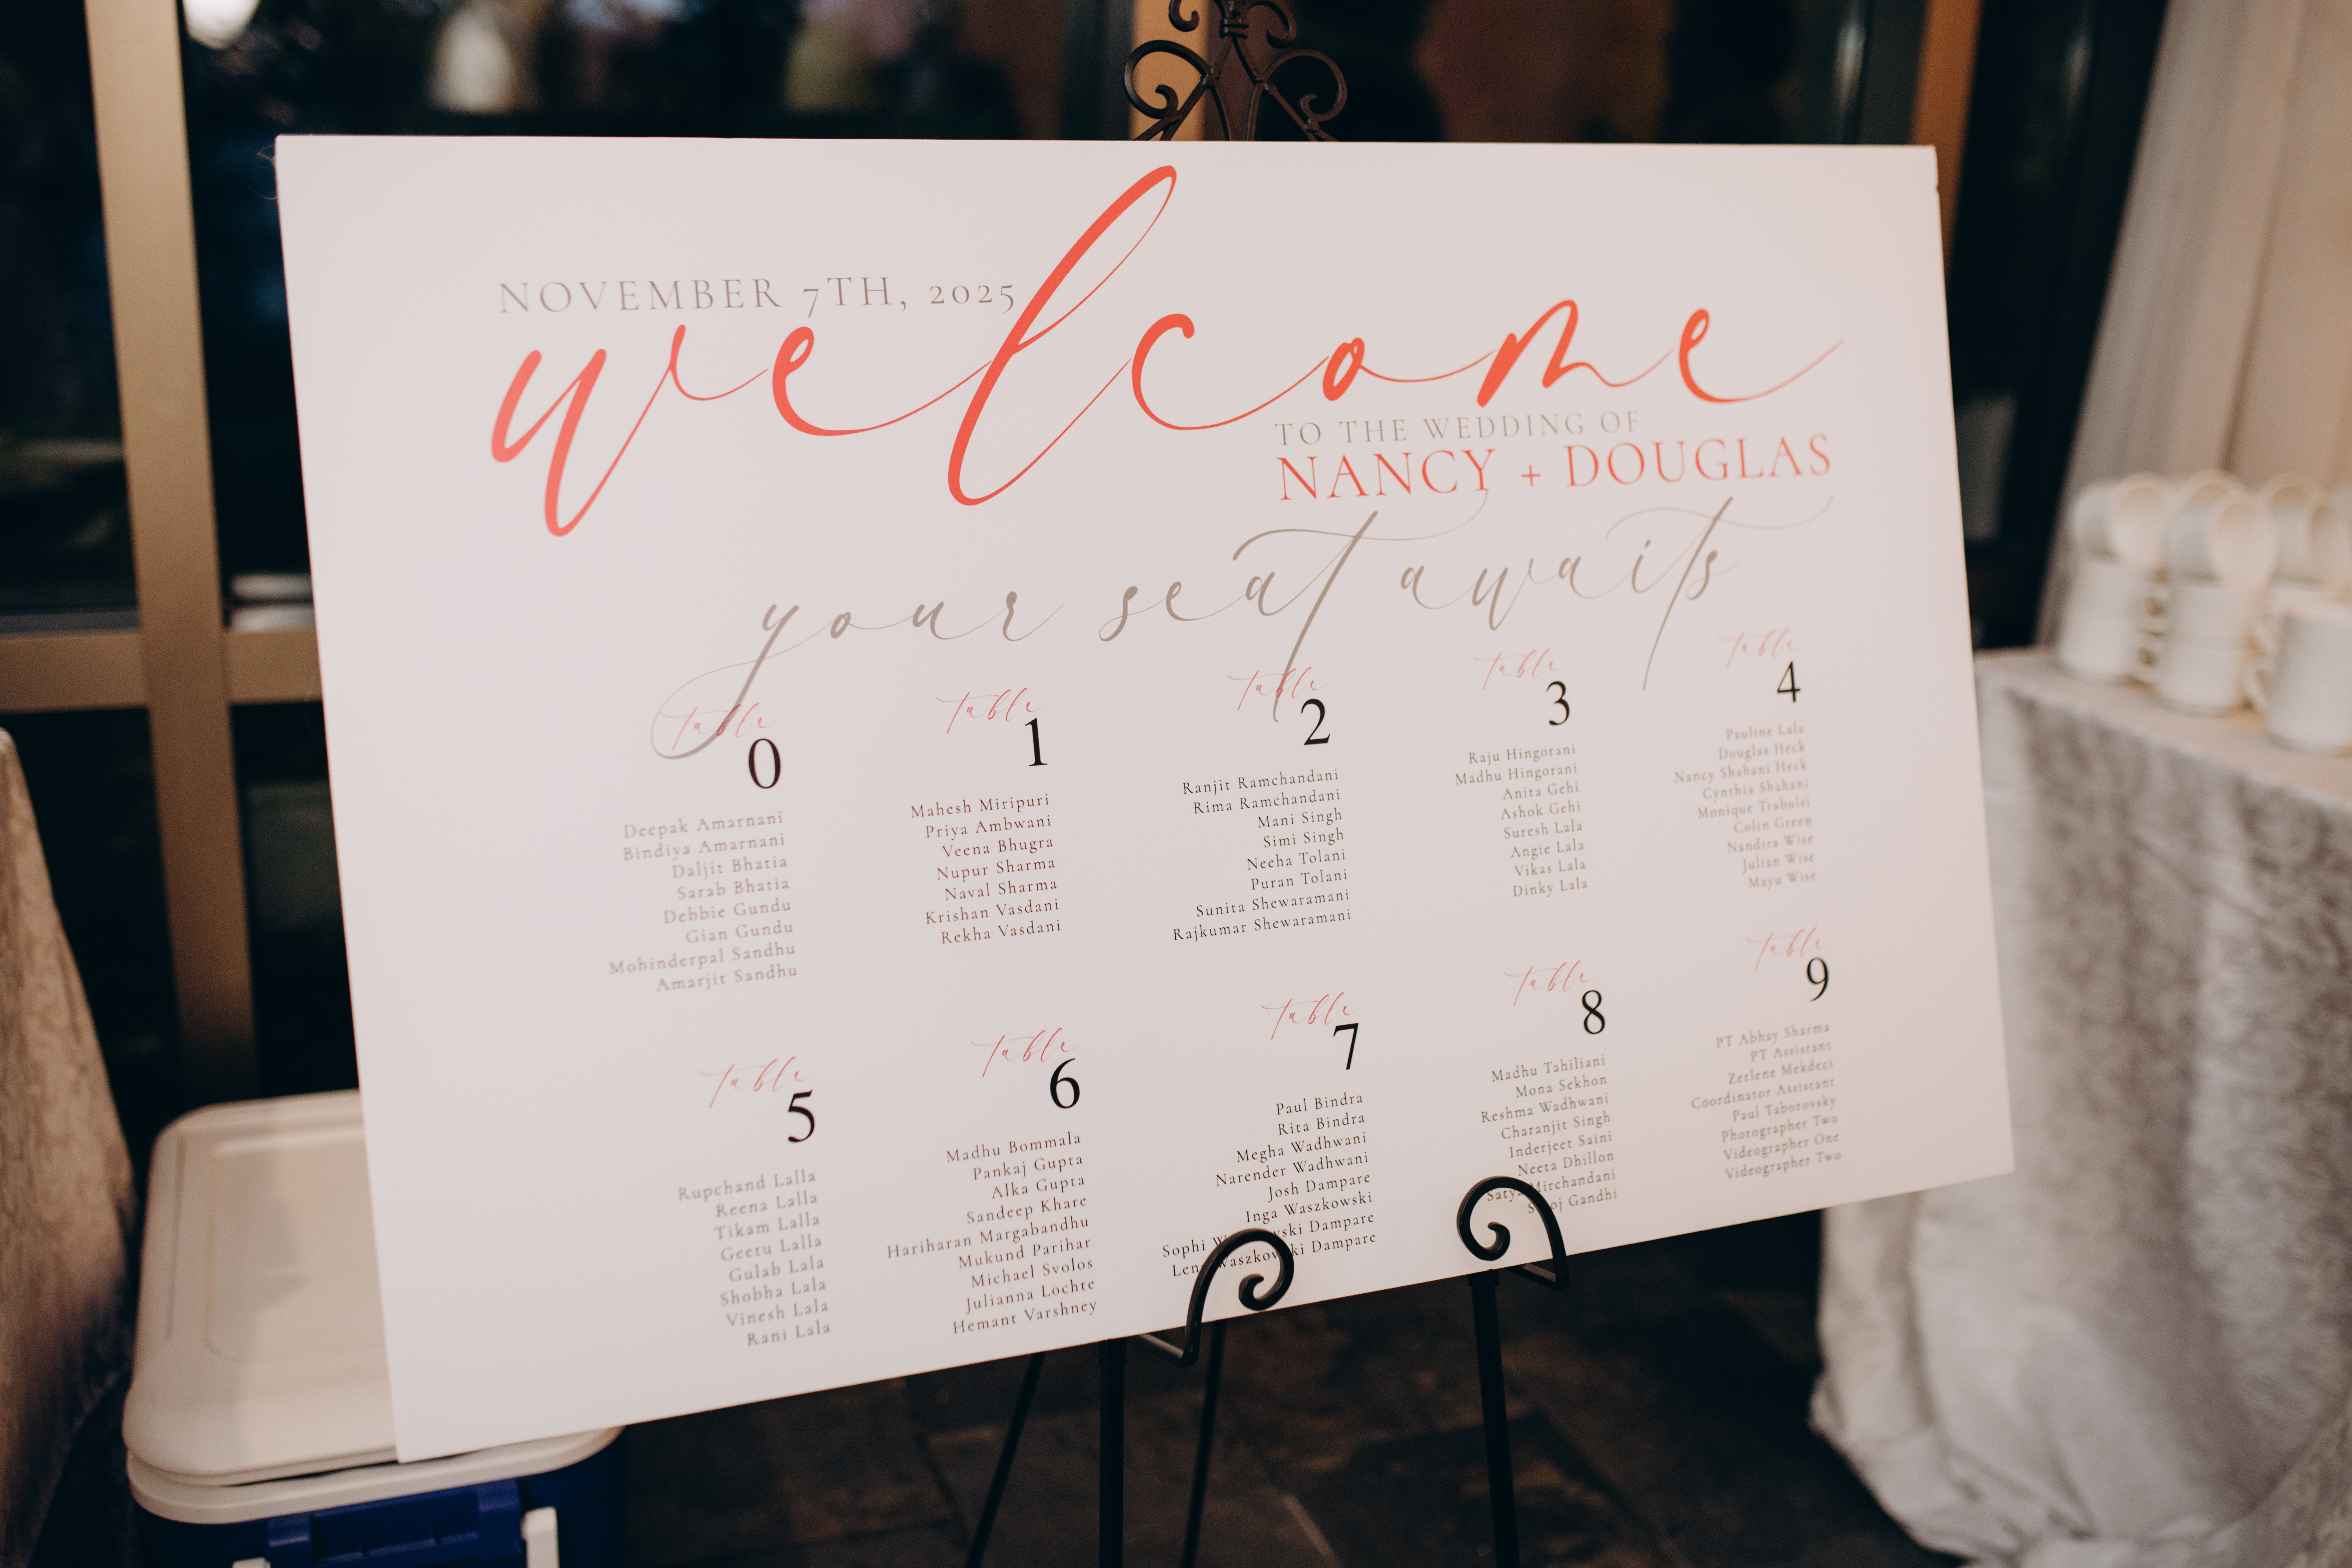 NOVEMBER 7TH, 2025
welcome
TO THE WEDDING OF
NANCY + DOUGLAS
your seat awaits
Table
0
Deepak Amarnani
Bindiya Amarnani
Daljit Bhatia
Sarab Bhatia
Debbie Gundu
Gian Gundu
Mohinderpal Sandhu
Amarjit Sandhu
Table
1
Mahesh Miripuri
Priya Ambwani
Veena Bhugra
Nupur Sharma
Naval Sharma
Krishan Vasdani
Rekha Vasdani
Table
2
Ranjit Ramchandani
Rima Ramchandani
Mani Singh
Simi Singh
Neeha Tolani
Puran Tolani
Sunita Shewaramani
Rajkumar Shewaramani
Table
3
Raju Hingorani
Madhu Hingorani
Anita Gehi
Ashok Gehi
Suresh Lala
Angie Lala
Vikas Lala
Dinky Lala
Table
4
Pauline Lala
Douglas Heck
Nancy Shahani Heck
Cynthia Shahani
Monique Trabulsi
Colin Green
Nandita Wise
Julian Wise
Maya Wise
Table
5
Rupchand Lalla
Reena Lalla
Tikam Lalla
Geetu Lalla
Gulab Lala
Shobha Lala
Vinesh Lala
Rani Lala
Table
6
Madhu Bommala
Pankaj Gupta
Alka Gupta
Sandeep Khare
Hariharan Margabandhu
Mukund Parihar
Michael Svolos
Julianna Lochte
Hemant Varshney
Table
7
Paul Bindra
Rita Bindra
Megha Wadhwani
Narender Wadhwani
Josh Dampare
Inga Waszkowski
Sophi Dampare
Dampare
Table
8
Madhu Tahiliani
Mona Sekhon
Reshma Wadhwani
Charanjit Singh
Inderjeet Saini
Neeta Dhillon
Mirchandani
Gandhi
Table
9
PT Abhay Sharma
PT Assistant
Zerlene Mekdeci
Coordinator Assistant
Paul Taborovsky
Photographer Two
Videographer One
Videographer Two